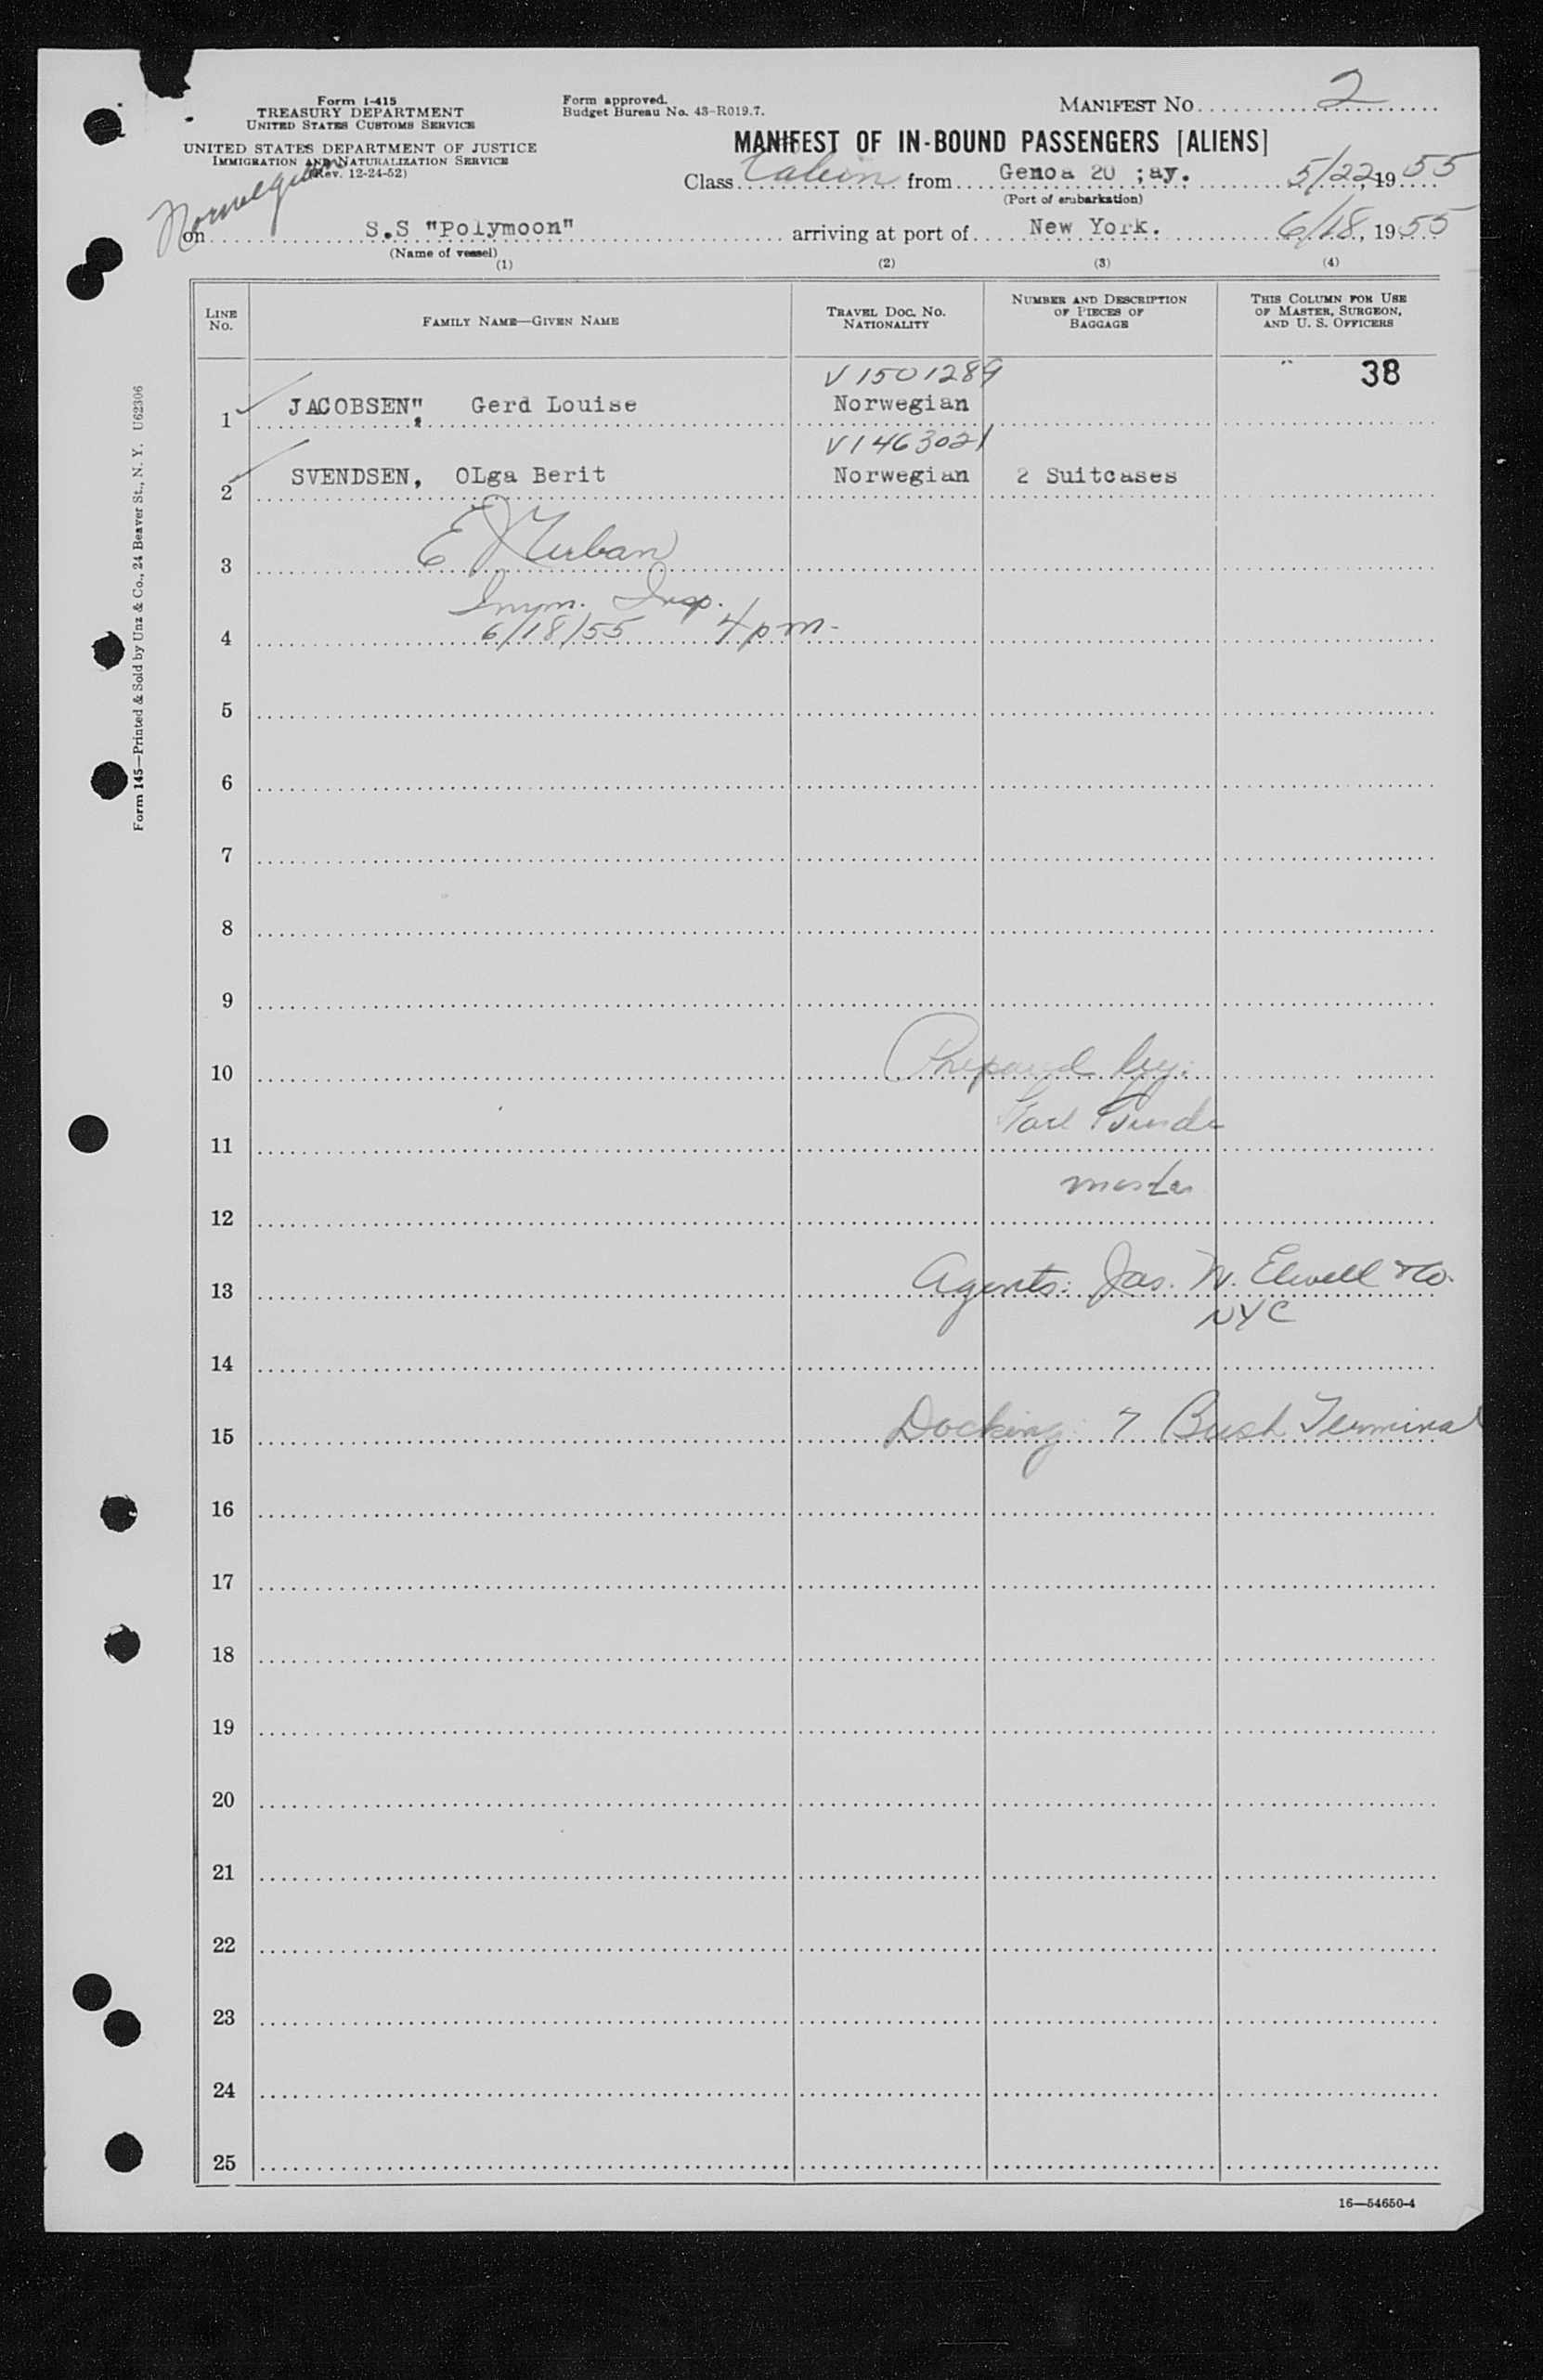 Form I-415
TREASURY DEPARTMENT
UNITED STATES CUSTOMS SERVICE
UNITED STATES DEPARTMENT OF JUSTICE
IMMIGRATION AND NATURALIZATION SERVICE
(Rev. 12-24-52)
Form approved.
Budget Bureau No. 43-R019.7.
MANIFEST NO. 2
MANIFEST OF IN-BOUND PASSENGERS [ALIENS]
Class Cabin from Genoa 20 ;ay. 5/22, 1955
(Port of embarkation)
Norwegian
on S.S "Polymoon" arriving at port of New York. 6/18, 1955
(Name of vessel)
(1) (2) (3) (4)
LINE NO.
FAMILY NAME—GIVEN NAME
TRAVEL DOC. NO. NATIONALITY
NUMBER AND DESCRIPTION OF PIECES OF BAGGAGE
THIS COLUMN FOR USE OF MASTER, SURGEON, AND U. S. OFFICERS
V1501289 38
1 JACOBSEN", Gerd Louise Norwegian
V1463021
2 SVENDSEN, OLga Berit Norwegian 2 Suitcases
3 E
Imm. Insp.
4 6/18/55 4 pm-
5
6
7
8
9
10 Prepared by:
11
master
12
13 Agents: Jas. W. Elwell & Co.
NYC
14
15 Docking: 7 Bush Terminal
16
17
18
19
20
21
22
23
24
25
16—54650-4
Form 145—Printed & Sold by Unz & Co., 24 Beaver St., N. Y. U62306